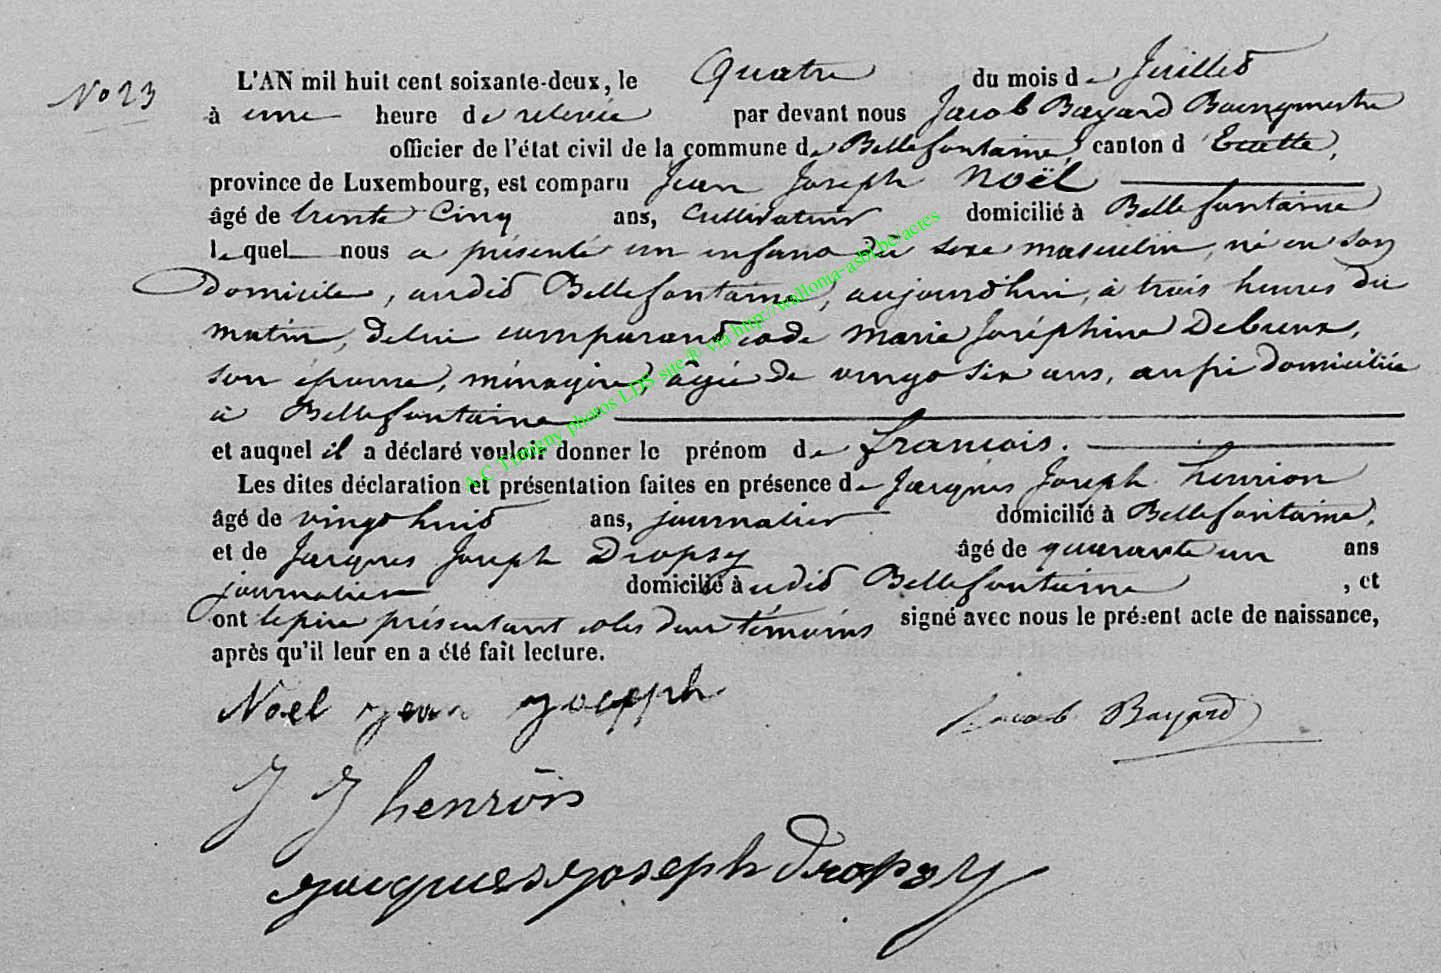 No 23
L'AN mil huit cent soixante-deux, le Quatre du mois de Juillet
à une heure de relevée par devant nous Jacob Bayard Bourgmestre
officier de l'état civil de la commune de Bellefontaine, canton d'Etalle,
province de Luxembourg, est comparu Jean Joseph Noël
âgé de trente Cinq ans, Cultivateur domicilié à Bellefontaine
lequel nous a présenté un enfant du sexe masculin, né en son
Domicile, audit Bellefontaine, aujourd'hui, à trois heures du
matin, de lui comparant et de Marie Joséphine
son épouse, ménagère, âgée de vingt six ans, aussi domiciliée
à Bellefontaine
et auquel il a déclaré vouloir donner le prénom de francois.
Les dites déclaration et présentation faites en présence de Jacques Joseph henrion
âgé de vingt huit ans, journalier domicilié à Bellefontaine,
et de Jacques Joseph Dropsy âgé de quarante un ans
journalier domicilié à udit Bellefontaine , et
ont le père présentant et les deux témoins signé avec nous le présent acte de naissance,
après qu'il leur en a été fait lecture.
Noel jean joseph
Jacob Bayard
J J henrion
jacques joseph dropsy
A.C Tintigny photos LDS sue® via http://wallonia-asbl.be/actes